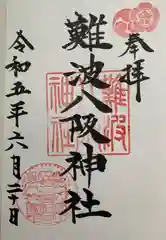 奉拝
難波
神社
難波八阪神社
令和五年六月二十日